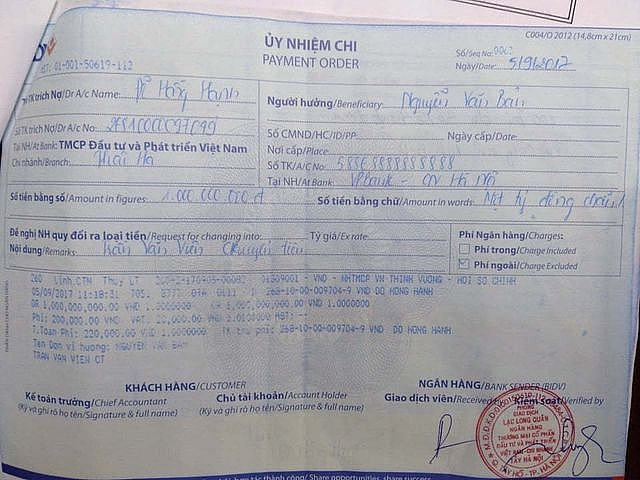 C004/D 2012 (14,8cm x 21cm)
ỦY NHIỆM CHI
PAYMENT ORDER
Số/Seq No:
Ngày/Date: 5/9/2017
MST: 01-001-50619-112
Tên TK trích Nợ/Dr A/c Name: Đỗ Hồng Hạnh
Số TK trích Nợ/Dr A/c No:
Tại NH/At Bank: TMCP Đầu tư và Phát triển Việt Nam
Chi nhánh/Branch: Thái Hà
Người hưởng/Beneficiary: Nguyễn Văn Bản
Số CMND/HC/ID/PP: Ngày cấp/Date:
Nơi cấp/Place
Số TK/A/C No:
Tại NH/At Bank: VPBank - CN Hà Nội
Số tiền bằng số/Amount in figures: 1.000.000.000 đ
Số tiền bằng chữ/Amount in words: Một tỷ đồng chẵn
Đề nghị NH quy đổi ra loại tiền/Request for changing into: Tỷ giá/Ex rate:
Nội dung/Remarks: Trần Văn Viên chuyển tiền
Phí Ngân hàng/Charges:
Phí trong/Charge Included
Phí ngoài/Charge Excluded
01309001 - VND - NHTMCP VN THINH VUONG - HOI SO CHINH
05/09/2017 11:18:31 705. 8777 268-10-00-009704-9 VND DO HONG HANH
DR 1,000,000,000.00 VND 1.0000000 CR 1,000,000,000.00 VND 1.0000000
Phi: 200,000.00 VND VAT: 20,000.00 VND
T.Toan Phi: 220,000.00 VND 1.0000000 TK thu phi: 268-10-00-009704-9 VND DO HONG HANH
Ten Don vi huong: NGUYEN VAN BAN
TRAN VAN VIEN CT
KHÁCH HÀNG/CUSTOMER
Kế toán trưởng/Chief Accountant Chủ tài khoản/Account Holder
(Ký và ghi rõ họ tên/Signature & full name) (Ký và ghi rõ họ tên/Signature & full name)
NGÂN HÀNG/BANK SENDER (BIDV)
Giao dịch viên/Received Kiểm soát/Verified by
PHÒNG
GIAO DỊCH
LẠC LONG QUÂN
NGÂN HÀNG
THƯƠNG MẠI CỔ PHẦN
ĐẦU TƯ VÀ PHÁT TRIỂN
VIỆT NAM - CHI NHÁNH
TÂY HÀ NỘI
Q. TÂY HỒ - TP. HÀ NỘI
hợp tác thành công/ Share opportunities, share success